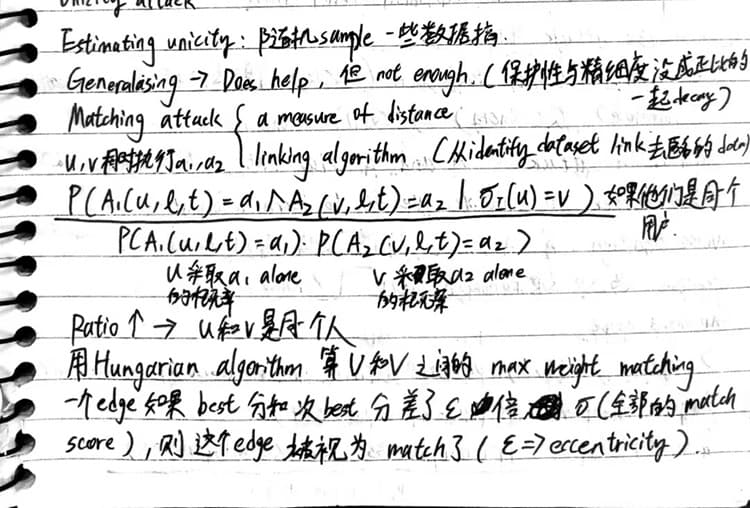 Unicity attack
Estimating unicity: 随机sample 一些数据指
Generalising → Does help, 但 not enough. (保护性与精细度没成正比的
一起decay)
Matching attack { a measure of distance
u, v 同时执行a₁, a₂ linking algorithm (从identify dataset link 去匿名的data)
P(A₁(u,l,t) = a₁ ∧ A₂(v,l,t) = a₂ | σ_I(u) = v) 如果他们是同个
用户.
P(A₁(u,l,t) = a₁) · P(A₂(v,l,t) = a₂)
u 采取a₁ alone v 采取a₂ alone
的概率 的概率
Ratio ↑ → u和v是同个人
用Hungarian algorithm 算 U和V 之间的 max weight matching
一个edge 如果 best 分和次best 分差了 ε 倍 σ(全部的match
score), 则这个edge 被视为 match了 (ε => eccentricity).